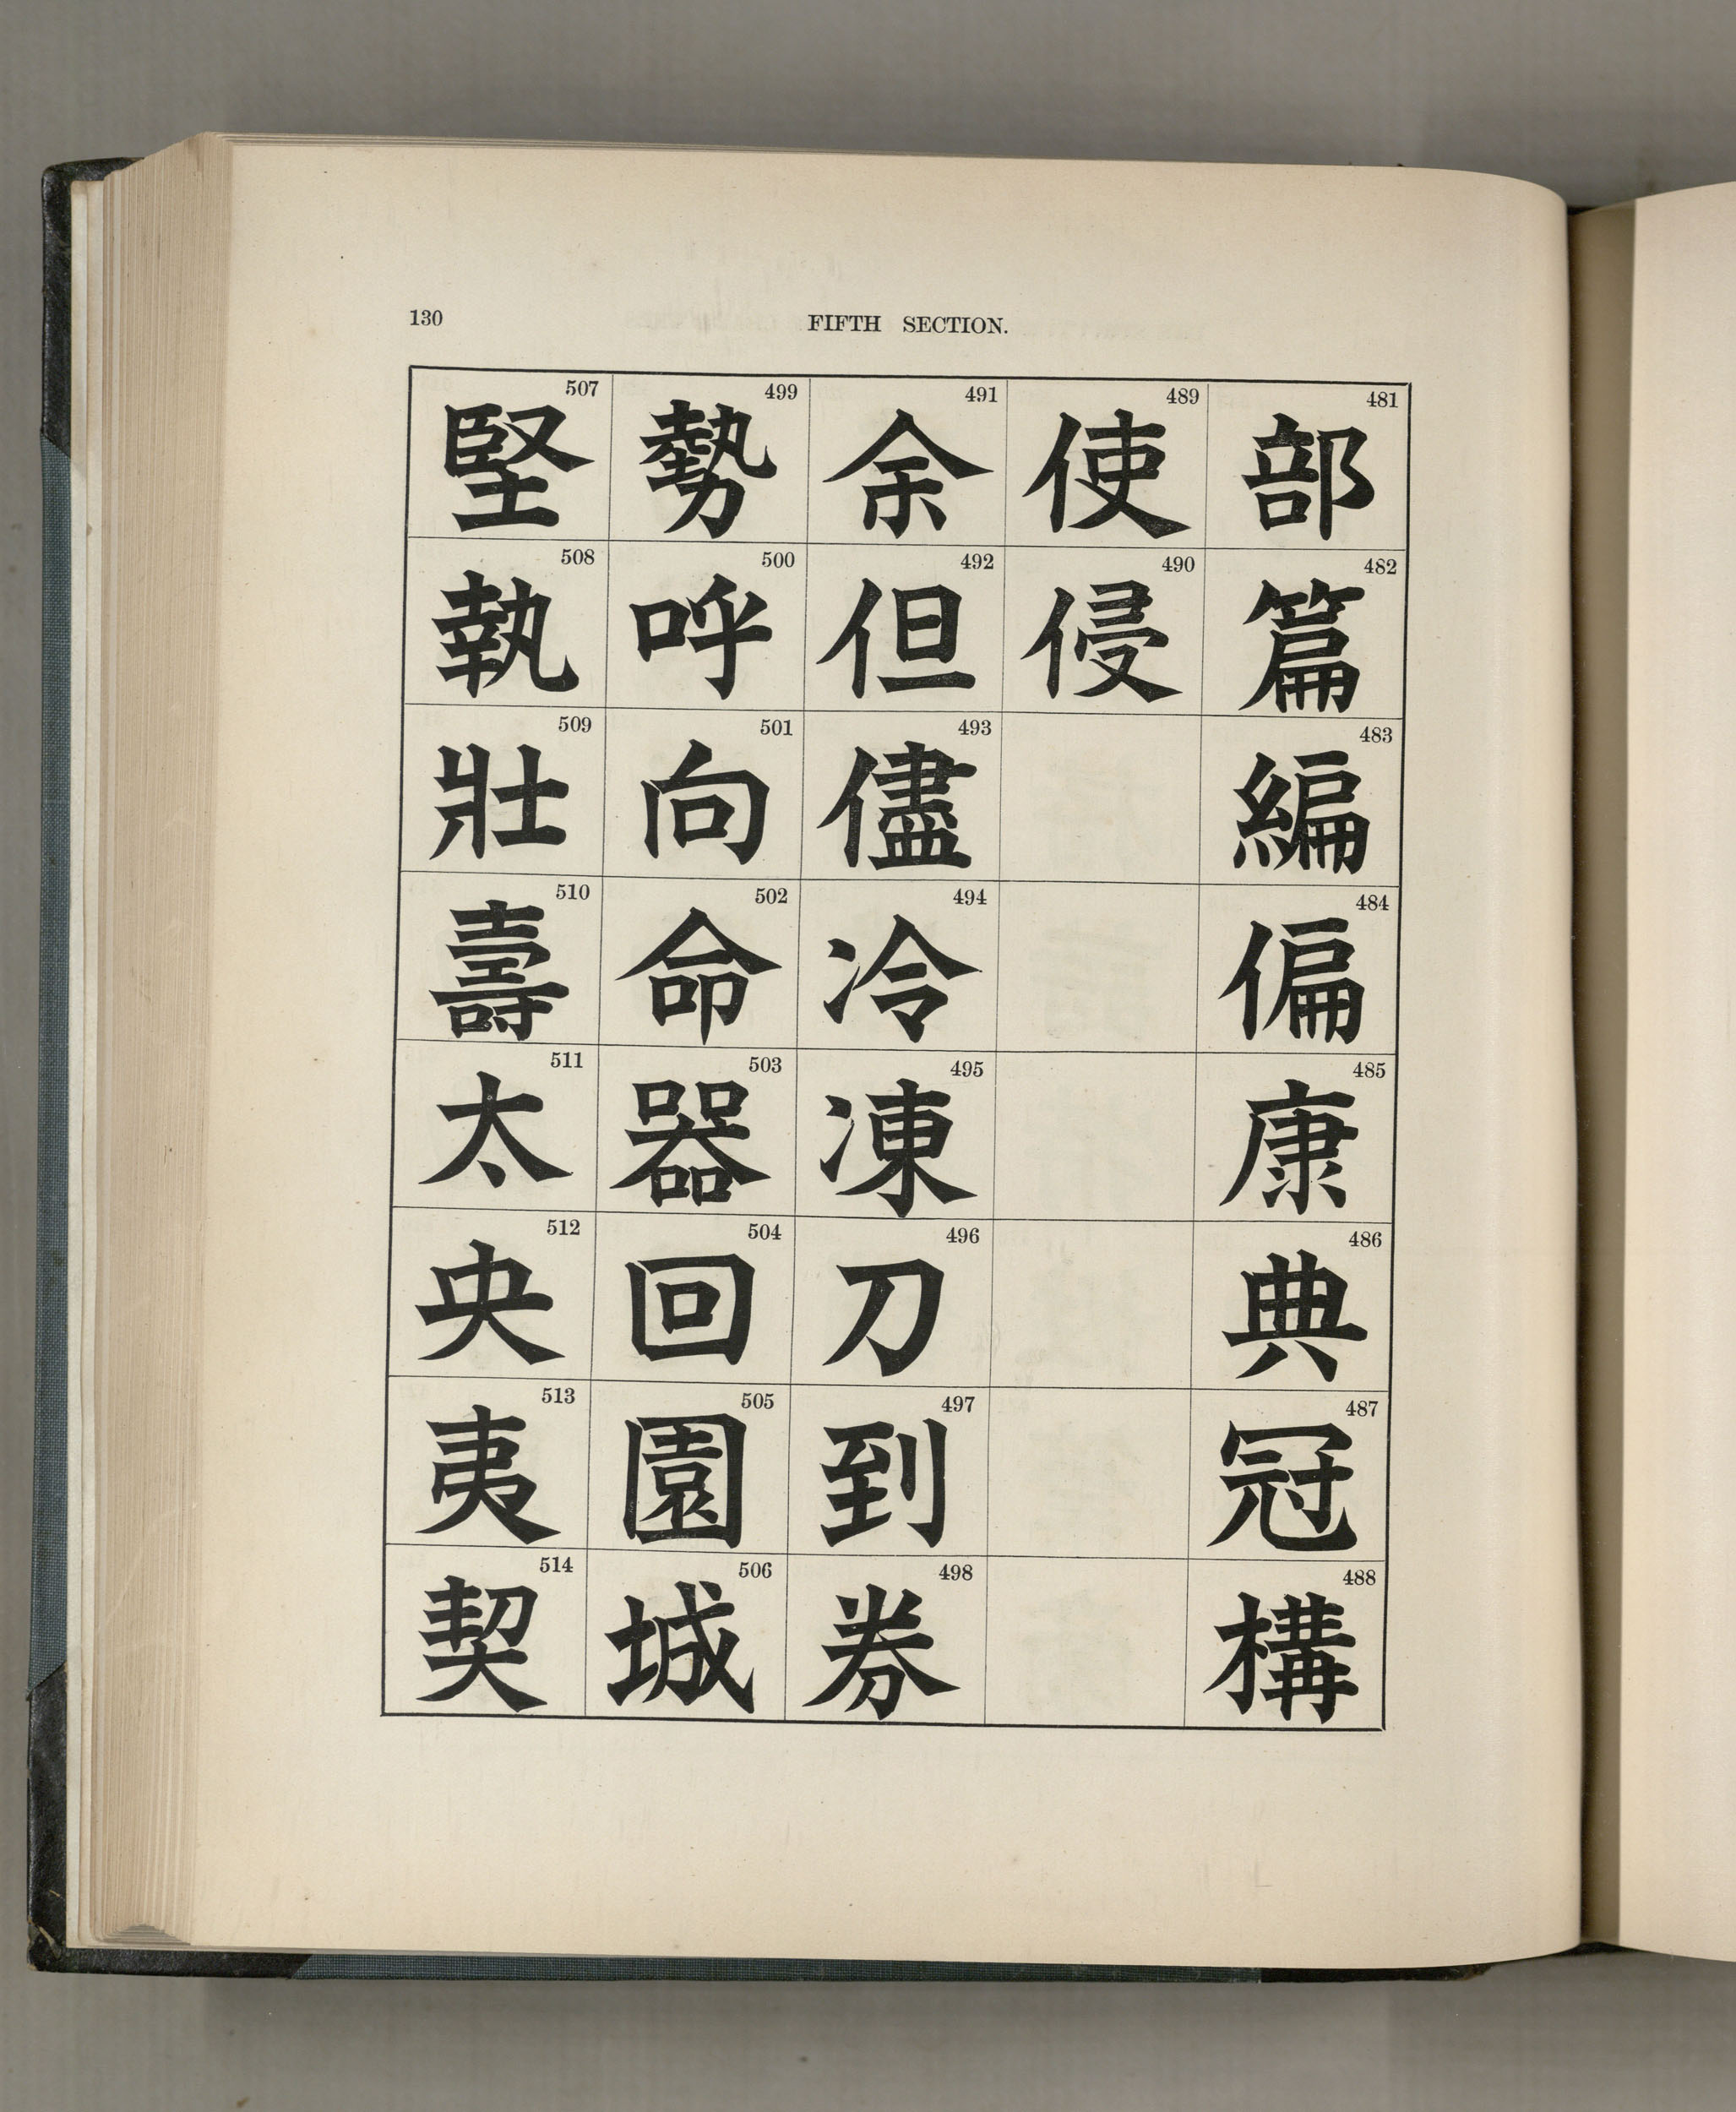 130
FIFTH SECTION.
481 部
482 篇
483 編
484 偏
485 康
486 典
487 冠
488 構
489 使
490 侵
491 余
492 但
493 儘
494 冷
495 凍
496 刀
497 到
498 券
499 勢
500 呼
501 向
502 命
503 器
504 回
505 園
506 城
507 堅
508 執
509 壯
510 壽
511 太
512 央
513 夷
514 契